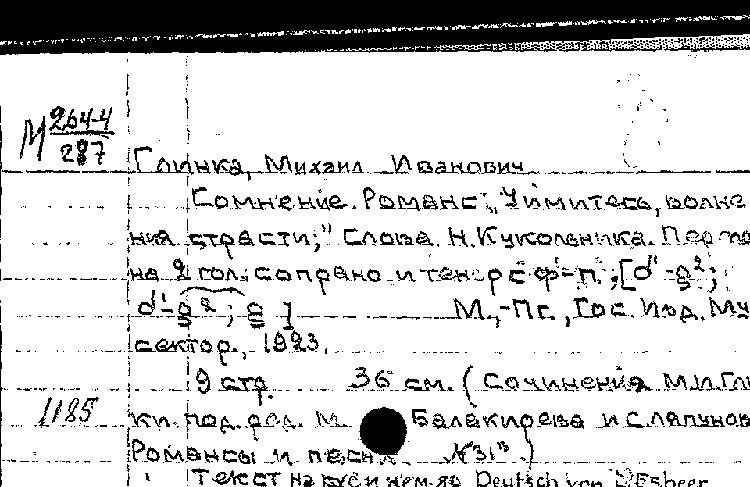 М 264-4
287
Глинка, Михаил Иванович
Сомнение. Романс: "Уймитесь, волне
ния страсти;" Слова Н. Кукольника. Пер
на 2 гол.: сопрано и тенор с ф-п.; [d'-g²;
d'-g²; ]
М.,-Пг., Гос. Изд. Му
сектор., 1923.
9 стр. 36 см. (Сочинения М.И. Гли
1185
ки под ред. М. Балакирева и С. Ляпунов
Романсы и песни. №31")
Текст на рус и нем. яз Deutsch von